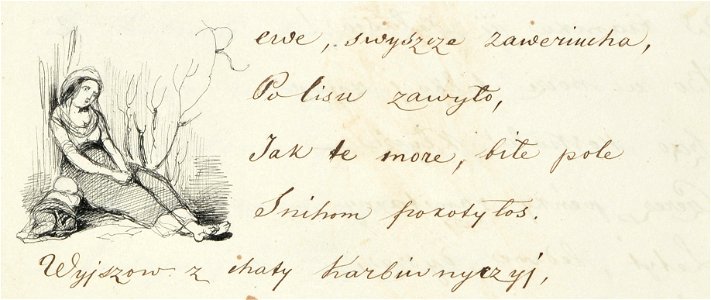 ewe, swyszcze zaweriucha,
Po lisu zawyło,
Jak te more, biłe pole
Snihom pokotyłoś.
Wyjszow z chaty karbiwnyczyj,